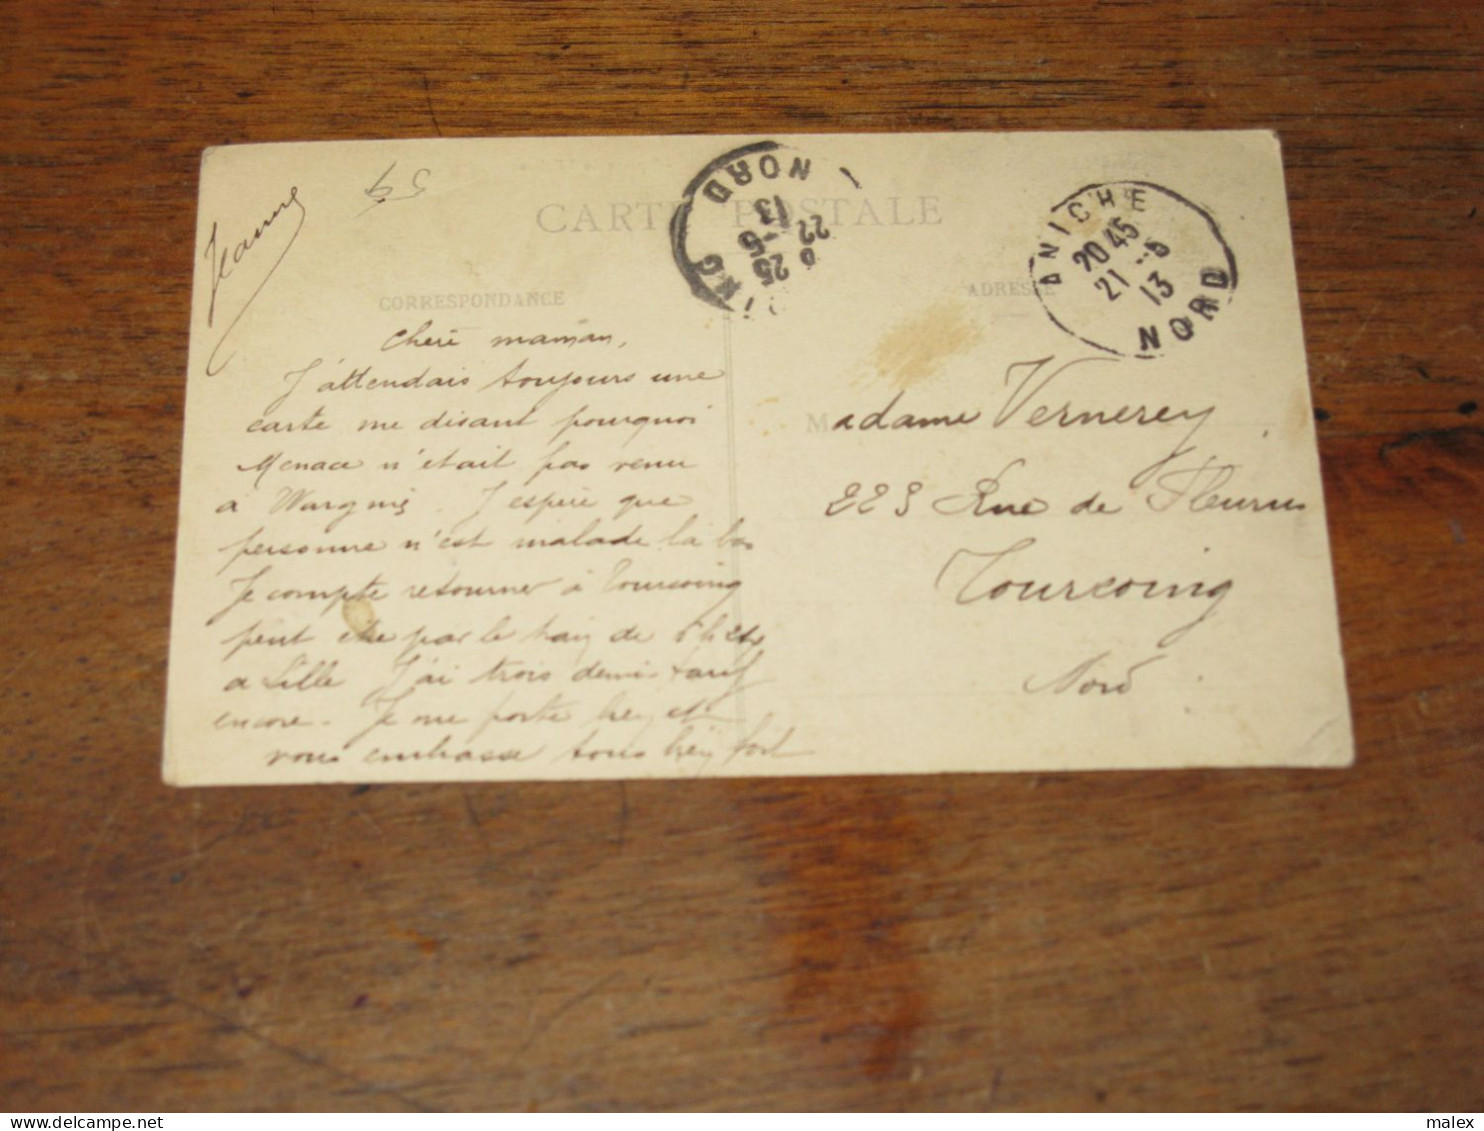 Jeanne
59
CARTE POSTALE
CORRESPONDANCE
ADRESSE
NORD
13
22
25
ANICHE
20 45
21 -6
13
NORD
Chère maman,
J'attendais toujours une
carte me disant pourquoi
n'était pas venu
à J'espère que
personne n'est malade la bas
Je compte retourner à Tourcoing
peut être par le train de
a Lille J'ai trois demi tarif
encore. Je me porte bien et
vous embrasse tous bien fort
Madame Vernerey
223 Rue de Fleurus
Tourcoing
Nord
malex